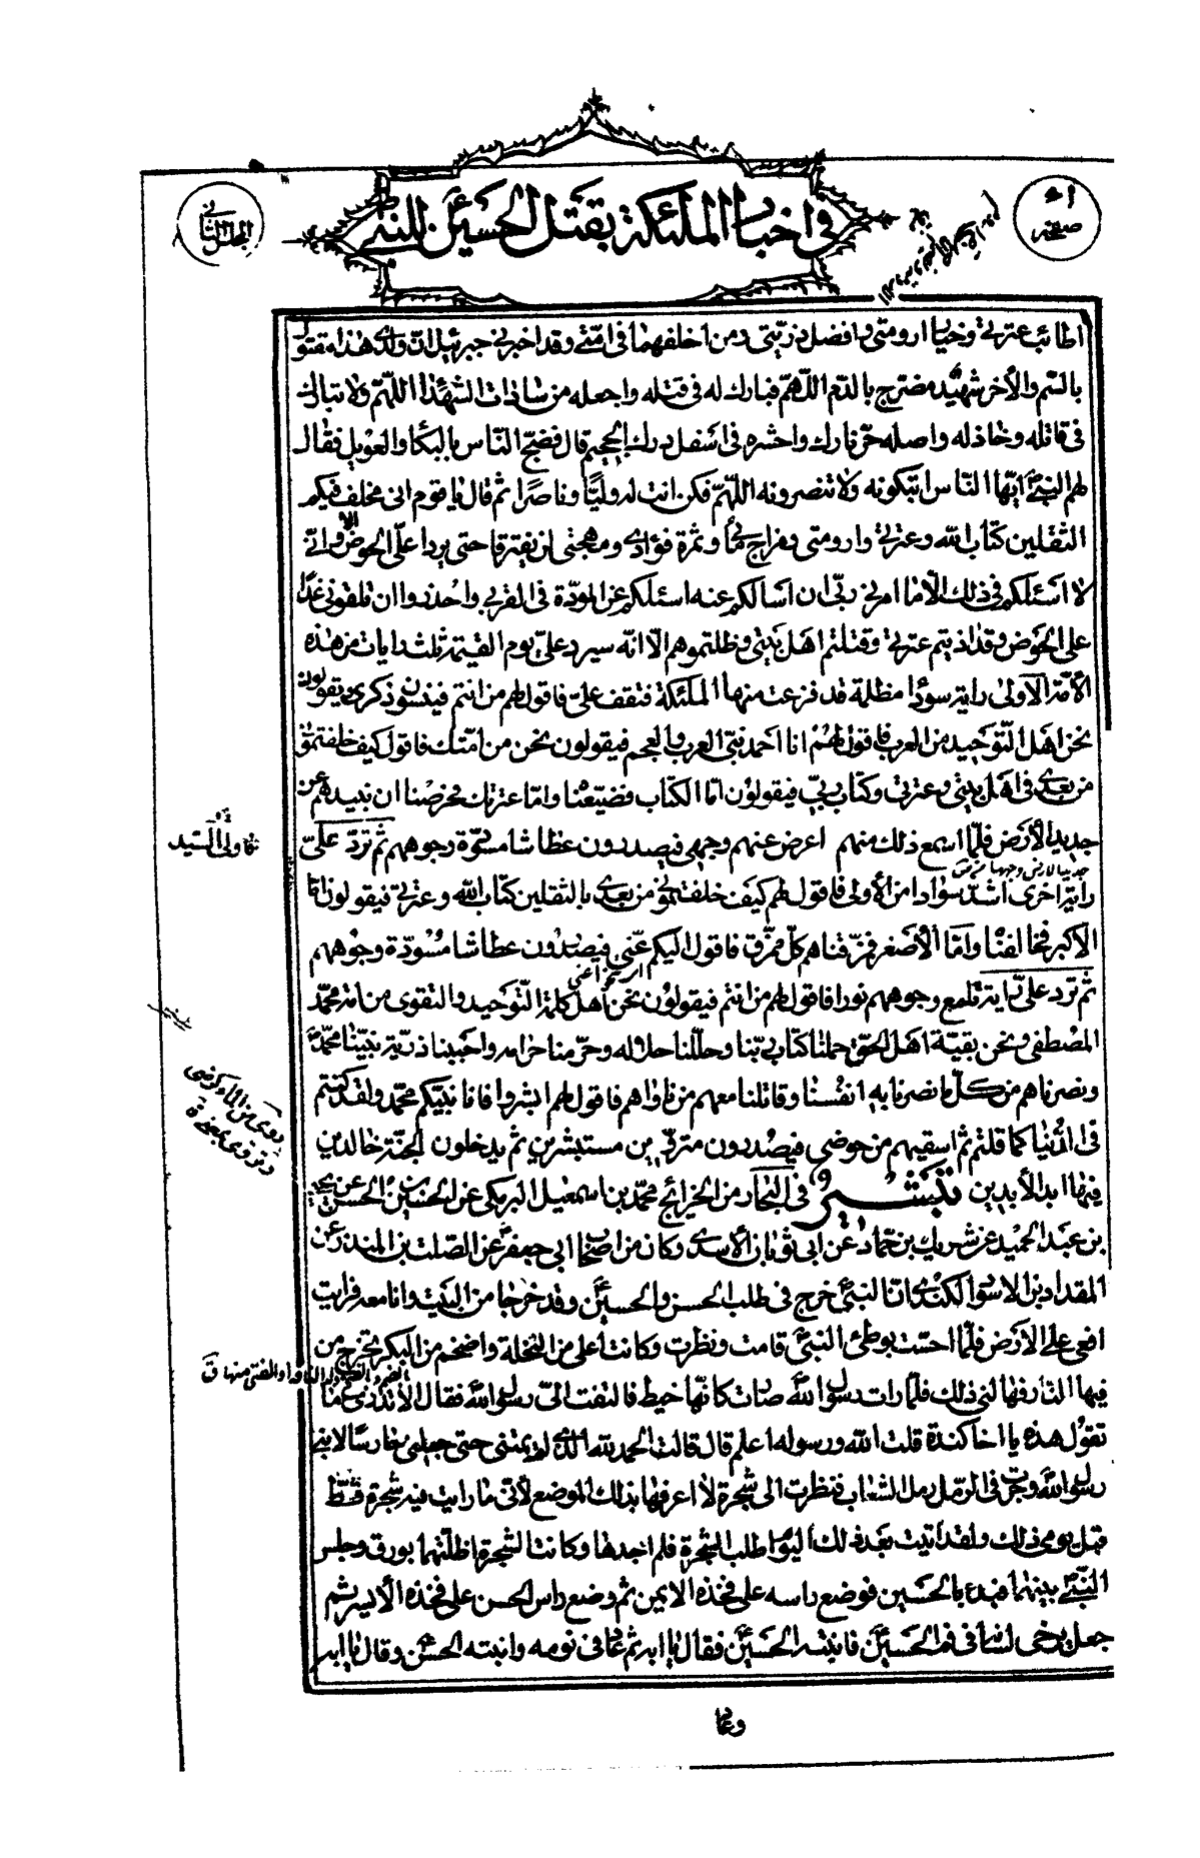 ٥١
صفحه
في اخبار الملئكة بقتل الحسين للنبي
المجلس الثاني
اطائب عترتي وخيار ارومتي وافضل ذريتي ومن اخلفهما في امتي وقد اخبرني جبرئيل ان ولدي هذا مقتول
بالسم والأخر شهيد مضرج بالدم اللهم فبارك له في قتله واجعله من سادات الشهداء اللهم ولا تبارك
في قاتله وخاذله واصله حر نارك واحشره في اسفل درك الجحيم قال فضج الناس بالبكاء والعويل فقال
لهم النبي ايها الناس اتبكونه ولا تنصرونه اللهم فكن انت له وليا وناصرا ثم قال يا قوم انى مخلف فيكم
الثقلين كتاب الله وعترتي وارومتي ومزاج مائي وثمرة فؤادي ومهجتي لن يفترقا حتى يردا على الحوض الا واني
لا اسئلكم في ذلك الا ما امرني ربي ان اسالكم عنه اسئلكم عن المودة في القربى واحذروا ان تلقوني غدا
على الحوض وقد اذيتم عترتي وقتلتم اهل بيتي وظلمتموهم الا انه سيرد علي يوم القيمة ثلث رايات من هذه
الأمة الأولى راية سوداء مظلمة قد فزعت منها الملئكة فتقف علي فاقول لهم من انتم فينسون ذكرى ويقولون
نحن اهل التوحيد من العرب فاقول لهم انا احمد نبي العرب والعجم فيقولون نحن من امتك فاقول كيف خلفتموني
من بعدي في اهل بيتي وعترتي وكتاب ربي فيقولون اما الكتاب فضيعنا واما عترتك فحرصنا ان نبيدهم عن
جديد الأرض فلما اسمع ذلك منهم اعرض عنهم وجهي فيصدرون عطاشا مسودة وجوههم ثم ترد علي
راية اخرى اشد سوادا من الأولى فاقول لهم كيف خلفتموني من بعدي بالثقلين كتاب الله وعترتي فيقولون اما
الاكبر فخالفنا واما الأصغر فمزقناهم كل ممزق فاقول اليكم عني فيصدرون عطاشا مسودة وجوههم
ثم ترد علي راية تلمع وجوههم نورا فاقول لهم من انتم فيقولون نحن اهل كلمة التوحيد والتقوى من امة محمد
المصطفى ونحن بقية اهل الحق حملنا كتاب ربنا وحللنا حلاله وحرمنا حرامه واحببنا ذرية نبينا محمد
ونصرناهم من كل ما نصرنا به انفسنا وقاتلنا معهم من ناواهم فاقول لهم ابشروا فانا نبيكم محمد ولقد كنتم
في الدنيا كما قلتم ثم اسقيهم من حوضي فيصدرون مرويين مستبشرين ثم يدخلون الجنة خالدين
فيها ابد الأبدين في البحار من الخرائج محمد بن اسمعيل البرمكي عن الحسين بن الحسن عن يحيى
بن عبد الحميد عن شريك بن حماد عن ابي ثوبان الأسدي وكان من اصحاب ابي جعفر عن الصلت بن المنذر عن
المقداد بن الاسود الكندي ان النبي خرج في طلب الحسن والحسين وقد خرجا من البيت وانا معه فرايت
افعى على الارض فلما احست بوطئ النبي قامت ونظرت وكانت اعلى من النخلة واضخم من البكر يخرج من
فيها النار فهالني ذلك فلما رات رسول الله صارت كانها خيط فالتفت الي رسول الله فقال الا تدري ما
تقول هذه يا اخا كندة قلت الله ورسوله اعلم قال قالت الحمد لله الذي لم يمتني حتى جعلني حارسا لابني
رسول الله وجرت في الرمل رمل الشعاب فنظرت الى شجرة لا اعرفها بذلك الموضع لأني ما رايت فيه شجرة قط
قبل يومي ذلك ولقد اتيت بعد ذلك اليوم اطلب الشجرة فلم اجدها وكانت الشجرة اظلتهما بورق وجلس
النبي بينهما فبدء بالحسين فوضع راسه على فخذه الايمن ثم وضع راس الحسن على فخذه الأيسر ثم
جعل يرخى لسانه في فم الحسين فانتبه الحسين فقال يا ابه ثم عاد في نومه وانتبه الحسن وقال يا ابه
وعاد